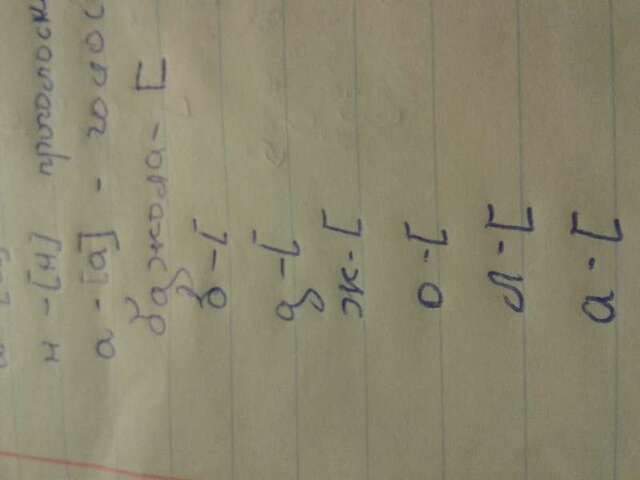 н - [н] приголосн
а - [а] - голос
бджола - [
б - [
д - [
ж - [
о - [
л - [
а - [